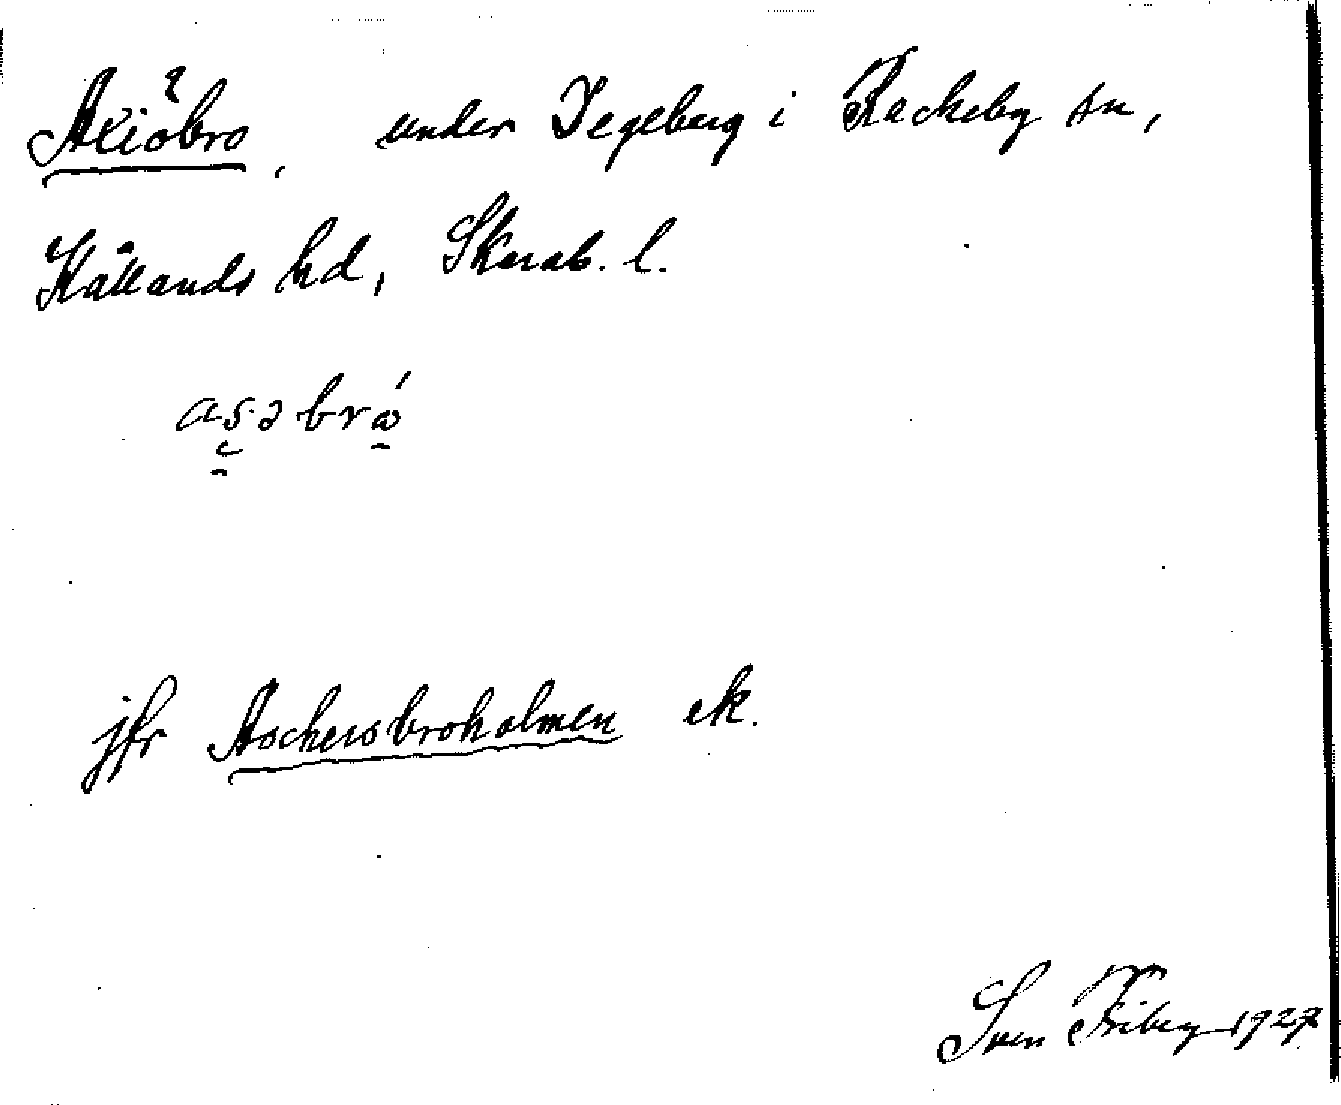 Axiöbro, under Tegeberg i Rackeby sn,
Kållands hd, Skarab. l.
asəbrώ
jfr Aschersbroholmen ek.
Sven Friberg 1927